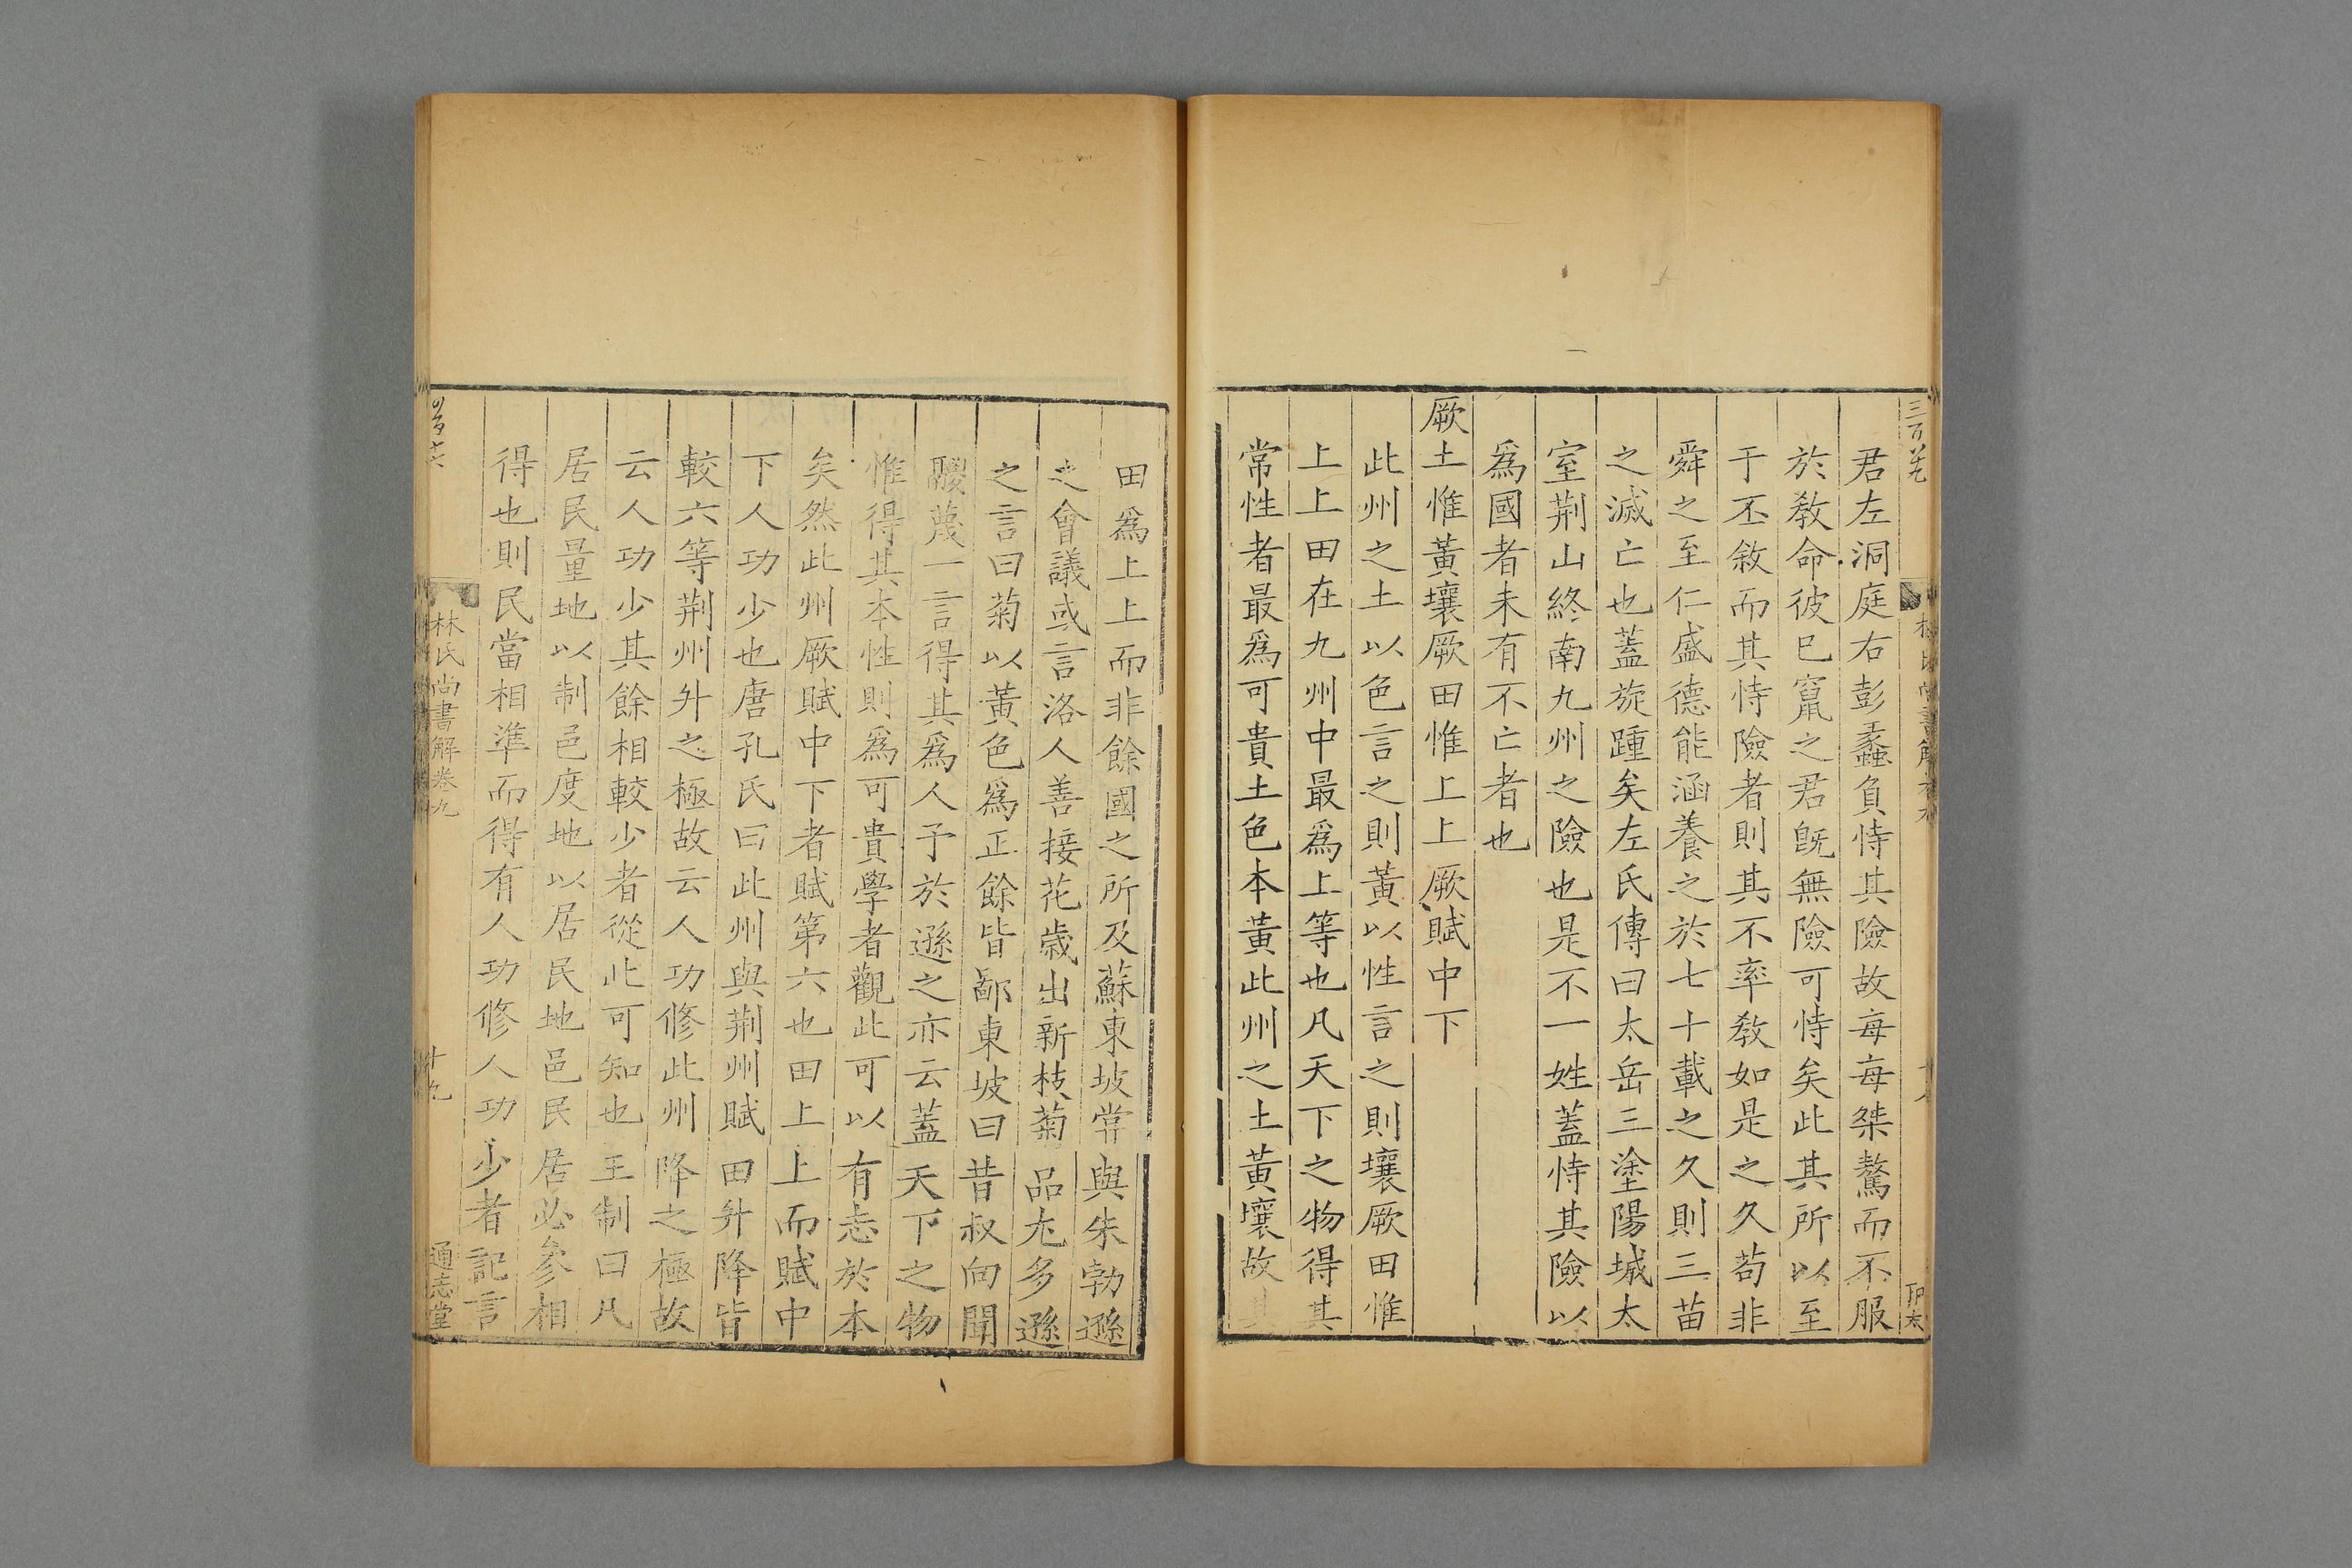 君左洞庭右彭蠡負恃其險故每每桀驁而不服
於教命彼巳竄之君旣無險可恃矣此其所以至
于丕敘而其恃險者則其不率教如是之久苟非
舜之至仁盛德能涵養之於七十載之久則三苗
之滅亡也蓋旋踵矣左氏傳曰太岳三塗陽城太
室荆山終南九州之險也是不一姓蓋恃其險以
爲國者未有不亡者也
厥土惟黃壤厥田惟上上厥賦中下
此州之土以色言之則黃以性言之則壤厥田惟
上上田在九州中最爲上等也凡天下之物得其
常性者最爲可貴土色本黃此州之土黃壤故其
田爲上上而非餘國之所及蘇東坡常與朱勃遜
之會議或言洛人善接花歲出新枝菊品尤多遜
之言曰菊以黃色爲正餘皆鄙東坡曰昔叔向聞
鬷蔑一言得其爲人予於遜之亦云蓋天下之物
惟得其本性則爲可貴學者觀此可以有志於本
矣然此州厥賦中下者賦第六也田上上而賦中
下人功少也唐孔氏曰此州與荆州賦田升降皆
較六等荆州升之極故云人功修此州降之極故
云人功少其餘相較少者從此可知也王制曰凡
居民量地以制邑度地以居民地邑民居必參相
得也則民當相準而得有人功修人功少者記言
林氏尚書解卷九
十九
通志堂